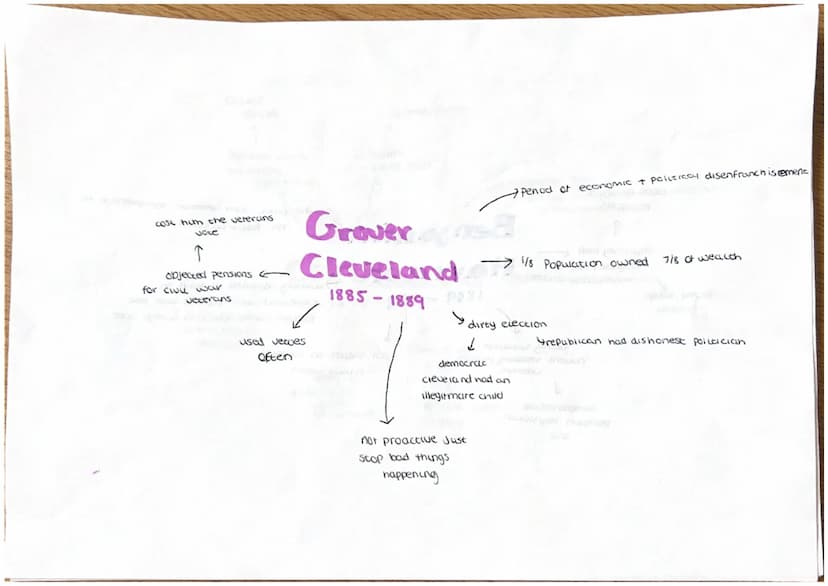 Grover
Cleveland
1885 - 1889
period of economic + political disenfranchisement
1/8 population owned 7/8 of wealth
dirty election
republican had dishonest politician
democrat
cleveland had an
illegitmare child
not proactive just
stop bad things
happening
used vetoes
often
objected pensions
for civil war
veterans
cost him the veterans
vote